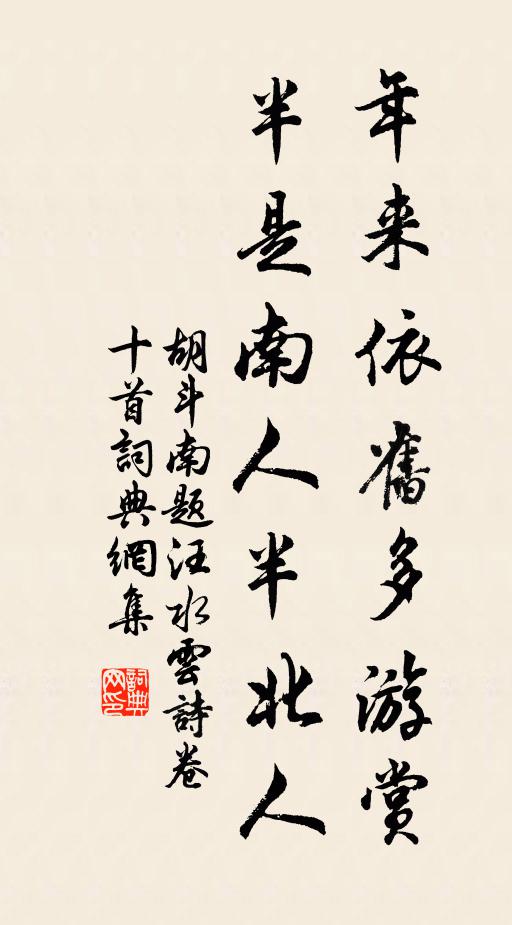 年来依舊多游赏
半是南人半北人
胡斗南题汪水雲詩卷
十首詞典網集
詞典网印